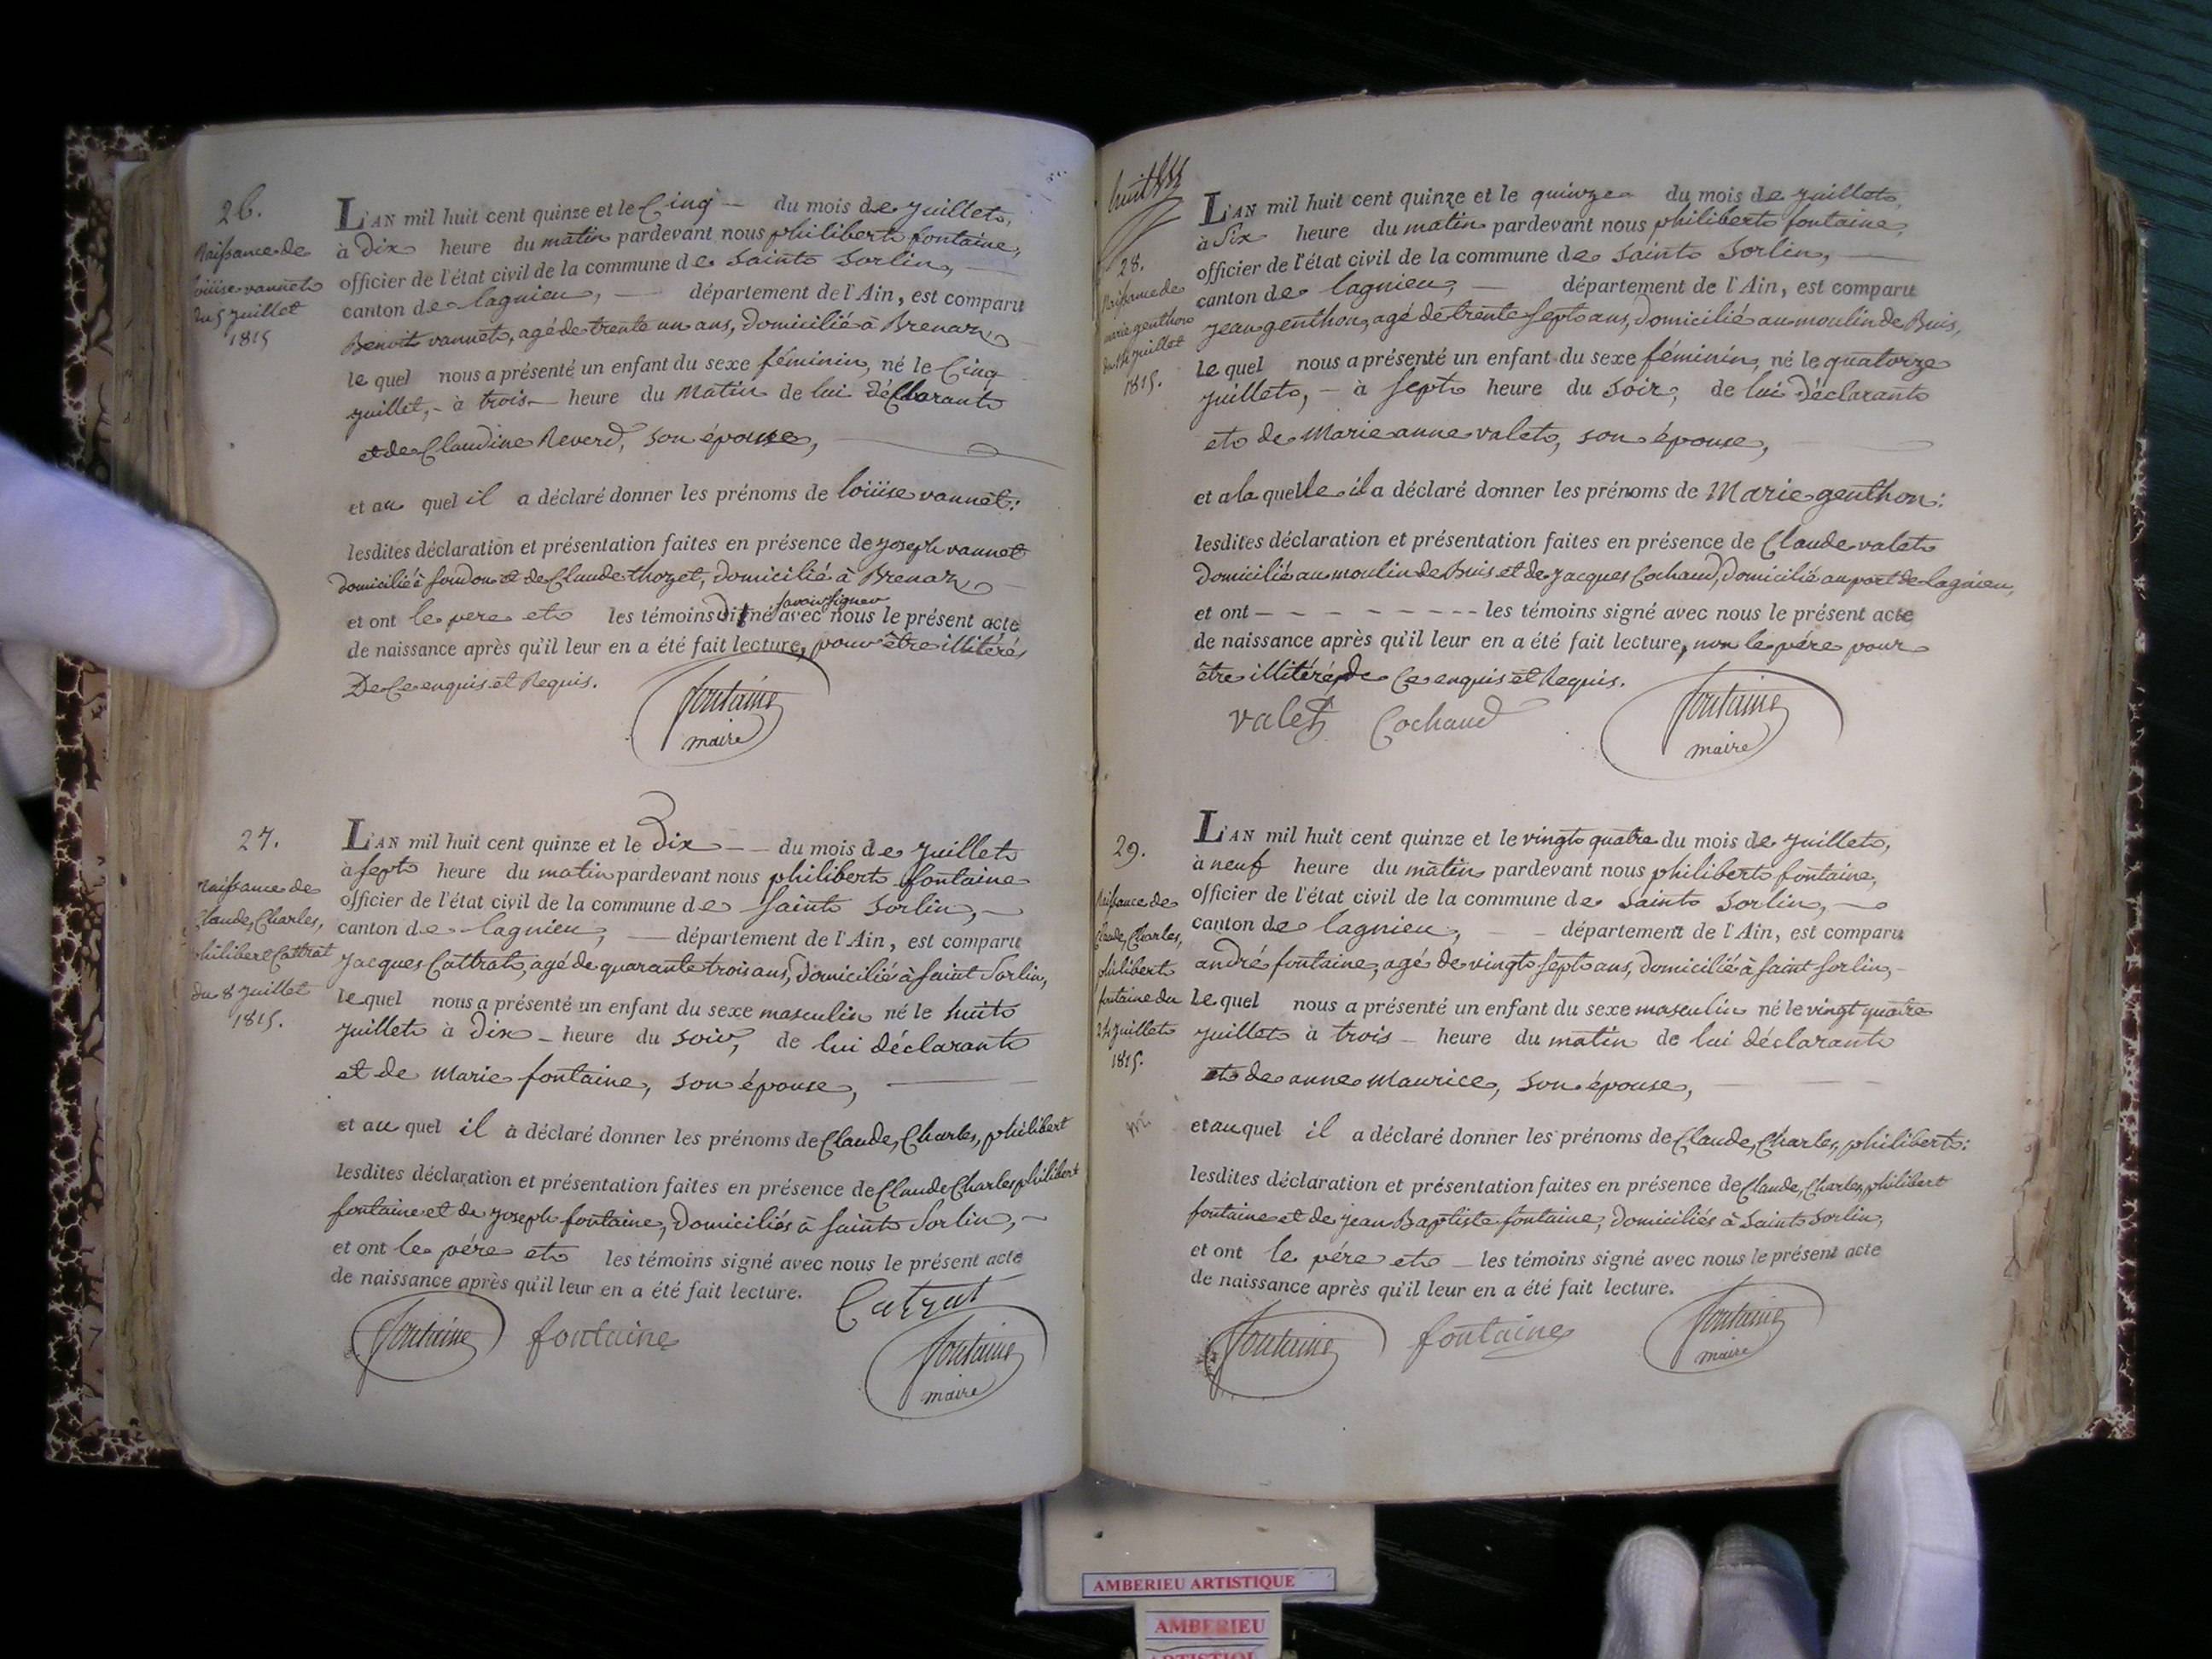 26.
Naissance de
loüise vannet
du 5 juillet
1815
L'AN mil huit cent quinze et le Cinq — du mois de juillet,
à Dix heure du matin pardevant nous philibert fontaine,
officier de l'état civil de la commune de Saint Sorlin, —
canton de lagnieu, — département de l'Ain, est comparu
Benoit vannet, agé de trente un ans, Domicilié à Brenaz
le quel nous a présenté un enfant du sexe féminin, né le Cinq
juillet, - à trois — heure du Matin de lui déclarant
et de Claudine Reverd, son épouse,
et au quel il a déclaré donner les prénoms de loüise vannet:
lesdites déclaration et présentation faites en présence de joseph vannet
domicilié à soudon et de Claude thozet, domicilié à Brenaz
savoir signer
et ont le pere et les témoins avec nous le présent acte
de naissance après qu'il leur en a été fait lecture, pour être illitérés
De Ce enquis et Requis.
fontaine
maire
27.
naissance de
Claude, Charles,
philibert Cattrat
du 8 juillet
1815.
L'AN mil huit cent quinze et le Dix — — du mois de juillet
à sept heure du matin pardevant nous philibert fontaine
officier de l'état civil de la commune de saint Sorlin, —
canton de lagnieu, — département de l'Ain, est comparu
jacques Cattrat, agé de quarante trois ans, Domicilié à saint Sorlin,
le quel nous a présenté un enfant du sexe masculin né le huit
juillet à Dix — heure du soir, de lui déclarant
et de Marie fontaine, son épouse, —
et au quel il a déclaré donner les prénoms de Claude, Charles, philibert
lesdites déclaration et présentation faites en présence de Claude Charles philibert
fontaine et de joseph fontaine, Domiciliés à saint Sorlin, —
et ont le pére et les témoins signé avec nous le présent acte
de naissance après qu'il leur en a été fait lecture.
Catrat
fontaine fontaine
fontaine
maire
huit
28.
Naissance de
marie genthon
du 14 juillet
1815.
L'AN mil huit cent quinze et le quinze du mois de juillet
à Six heure du matin pardevant nous philibert fontaine,
officier de l'état civil de la commune de Saint Sorlin, —
canton de lagnieu, — département de l'Ain, est comparu
jean genthon, agé de trente sept ans, Domicilié au moulin de Buis,
le quel nous a présenté un enfant du sexe féminin, né le quatorze
juillet, — à sept heure du soir, de lui déclarant
et de Marie anne valet, son épouse,
et a la quelle il a déclaré donner les prénoms de Marie genthon:
lesdites déclaration et présentation faites en présence de Claude valet
Domicilié au moulin de Buis et de jacques Cochaud, domicilié au port de lagnieu,
et ont — — — — — — — — les témoins signé avec nous le présent acte
de naissance après qu'il leur en a été fait lecture, non le pére pour
être illitéré, de Ce enquis et Requis.
valet Cochaud
fontaine
maire
29.
Naissance de
Claude, Charles,
philibert
fontaine du
24 juillet
1815.
L'AN mil huit cent quinze et le vingt quatre du mois de juillet,
à neuf heure du matin pardevant nous philibert fontaine,
officier de l'état civil de la commune de Saint Sorlin, —
canton de lagnieu, — — département de l'Ain, est comparu
andré fontaine, agé de vingt sept ans, Domicilié à saint sorlin, —
le quel nous a présenté un enfant du sexe masculin né le vingt quatre
juillet à trois — heure du matin de lui déclarant
et de anne Maurice, son épouse, —
et au quel il a déclaré donner les prénoms de Claude, Charles, philibert:
lesdites déclaration et présentation faites en présence de Claude, Charles, philibert
fontaine et de jean Baptiste fontaine, Domiciliés à Saint Sorlin,
et ont le pére et — les témoins signé avec nous le présent acte
de naissance après qu'il leur en a été fait lecture.
fontaine fontaine
fontaine
maire
AMBERIEU ARTISTIQUE
AMBERIEU
ARTISTIQUE